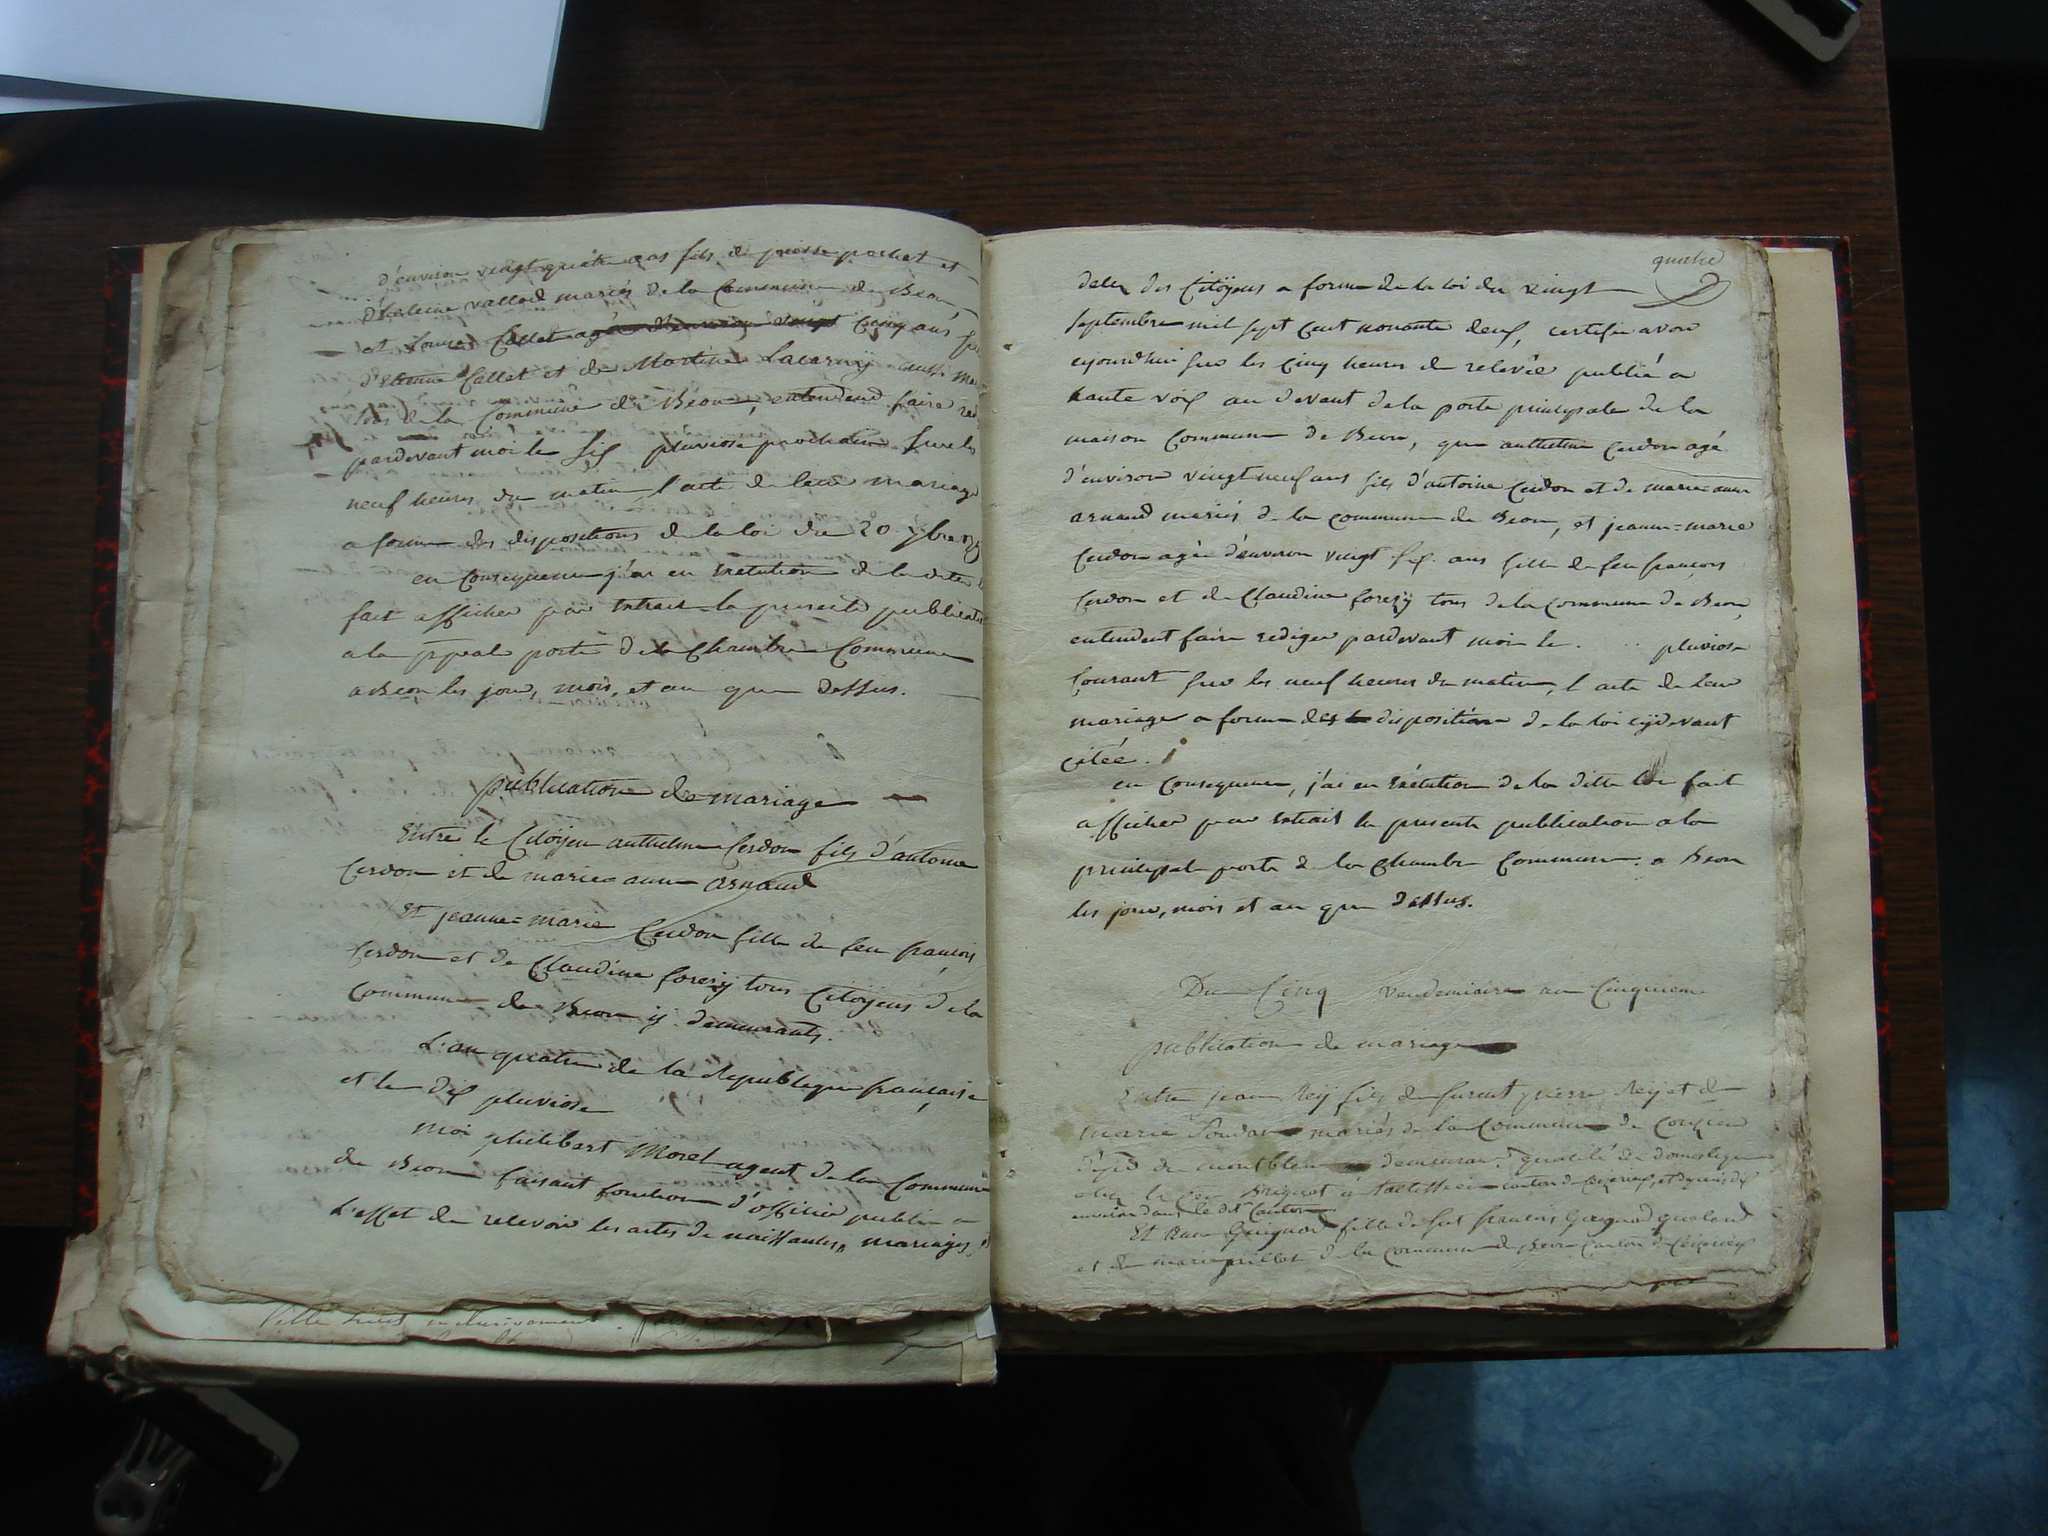 d'environ vingt quatre ans fils de pierre pochet et
d'helene vallod mariés de la Commune de Beon
et Louise Callet agée d'environ vingt Cinq ans
d'Etienne Callet et de Martine Lacarny aussi ma
riés de la Commune de Beon, entendent faire red
pardevant moi le six pluviose prochain sur les
neuf heures du matin, l'acte de leur mariage
a forme des dispositions de la loi du 20 7bre
en Consequence j'ai en Exécution de la dite
fait afficher par Extrait la presente publication
a la ppale porte de la Chambre Commune
a Beon les jour, mois, et an que dessus.
publication de mariage
Entre le Citoÿen anthelme Cerdon fils d'antoine
Cerdon et de marie=anne arnaud
Et jeanne=marie Cerdon fille de feu francois
Cerdon et de Claudine foresÿ tous Citoÿens de la
Commune de Beon ÿ demeurants.
L'an quatre de la Republique francaise
et le dix pluviose
Moi philibert Moret agent de la Commune
de Beon faisant fonction d'officier public a
L'effet de recevoir les actes de naissances, mariages,
Ville inclusivement.
quatre
deces des Citoÿens a forme de la loi du vingt
septembre mil sept Cent nonante deux, certifie avoir
cejourd'hui sur les Cinq heures de relevée publié a
haute voix au devant de la porte principale de la
maison Commune de Beon, que anthelme Cerdon agé
d'environ vingt neuf ans fils d'antoine Cerdon et de marie=anne
arnaud mariés de la commune de Beon, et jeanne=marie
Cerdon agée d'environ vingt six ans fille de feu francois
Cerdon et de Claudine foresÿ tous de la Commune de Beon,
entendent faire rediger pardevant moi le . .. pluviose
Courant sur les neuf heures du matin, l'acte de leur
mariage a forme des disposition de la loi cÿdevant
citée.
en Consequence, j'ai en Exécution de la ditte loi fait
afficher par Extrait la presente publication a la
principale porte de la Chambre Commune a Beon
les jour, mois et an que dessus.
Du Cinq Vendemiaire an Cinquieme
publication de mariage
Entre jean Reÿ fils de furent pierre Reÿ et de
Marie mariés de la Commune de
de montblanc demeurant qualité de domestique
chez le canton de Ceÿzerieu, et depuis dix
environ dans le dit Canton
Et Guignod fille de feu francois Guignod
et de marie de la Commune de Beon Canton de Ceÿzerieu